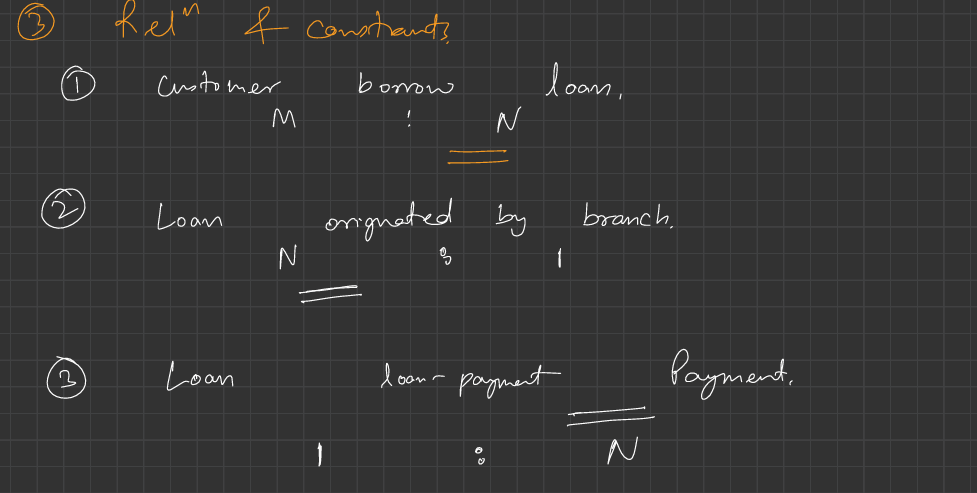 ③ Relⁿ & constraints
① Customer borrow loan.
M : N
② Loan orignated by branch.
N : 1
③ Loan loan-payment Payment.
1 : N